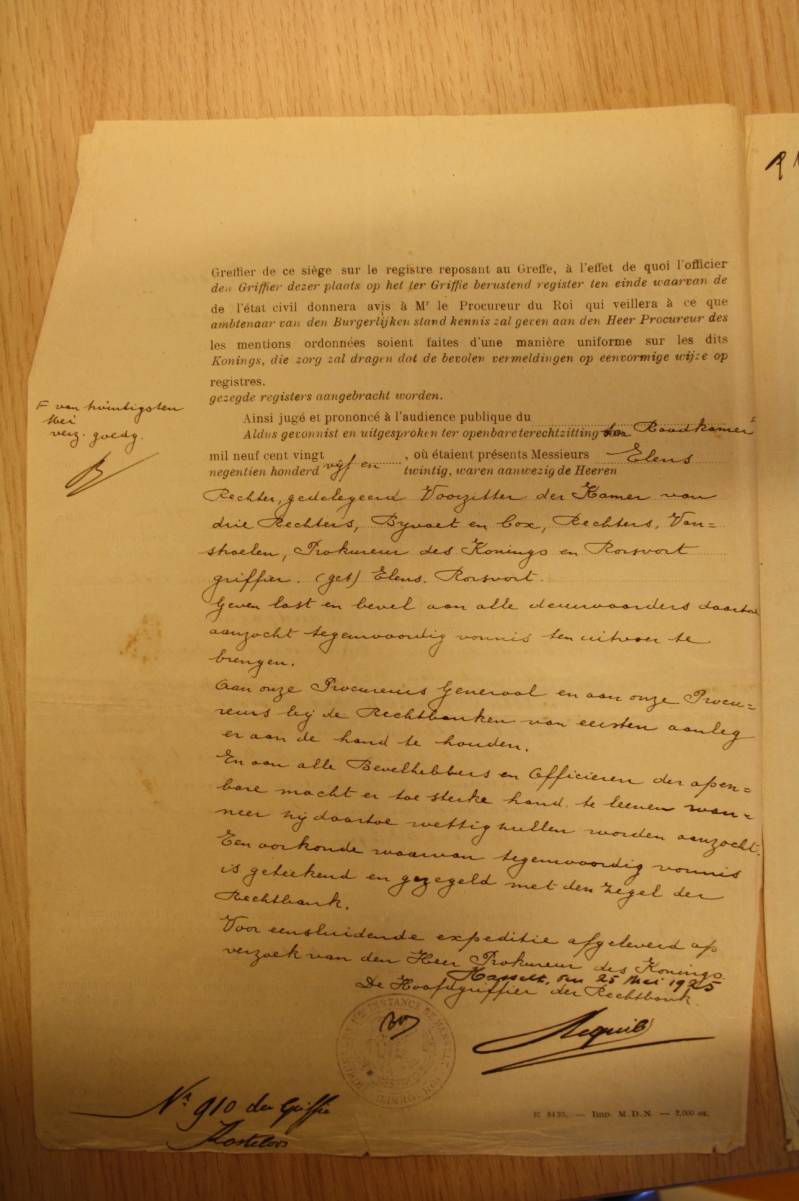 Greffier de ce siège sur le registre reposant au Greffe, à l'effet de quoi l'officier
den Griffier dezer plaats op het ter Griffie berustend register ten einde waarvan de
de l'état civil donnera avis à Mr le Procureur du Roi qui veillera à ce que
ambtenaar van den Burgerlijken stand kennis zal geven aan den Heer Procureur des
les mentions ordonnées soient faites d'une manière uniforme sur les dits
Konings, die zorg zal dragen dat de bevolen vermeldingen op eenvormige wijze op
registres.
gezegde registers aangebracht worden.
F van twintigsten
Mei
verz. goedg.
Ainsi jugé et prononcé à l'audience publique du
Aldus gevonnist en uitgesproken ter openbare terechtzitting Raadkamer F
mil neuf cent vingt , où étaient présents Messieurs Elens
negentien honderd vijf en twintig, waren aanwezig de Heeren
Rechter, gedelegeerd Voorzitter der Kamer van
drie Rechters, Byvoet en Cox, Rechters, Van=
stroelen, Prokureur des Konings en Rorsvort
griffier. (get) Elens. Rorsvort.
Geven last en bevel aan alle deurwaarders daartoe
aanzocht tegenwoordig vonnis ten uitvoer te
brengen.
Aan onze Procureurs Generaal en aan onze Procu=
reurs bij de Rechtbanken van eersten aanleg
er aan de hand te houden.
En aan alle Bevelhebbers en Officieren der open=
bare macht er toe sterke hand te leenen wan=
neer zij daartoe wettig zullen worden aanzocht.
Een oorkonde waarvan tegenwoordig vonnis
is geteekend en gezegeld met den zegel der
Rechtbank.
Voor eensluidende expeditie afgeleverd op
verzoek van den Heer Prokureur des Konings
Hasselt, den 25 Mei 1925
De Hoofdgriffier der Rechtbank
Nr 910 der Griffie
Kosteloos
E 8430. — Imp. M.D.N. — 2,000 ex.